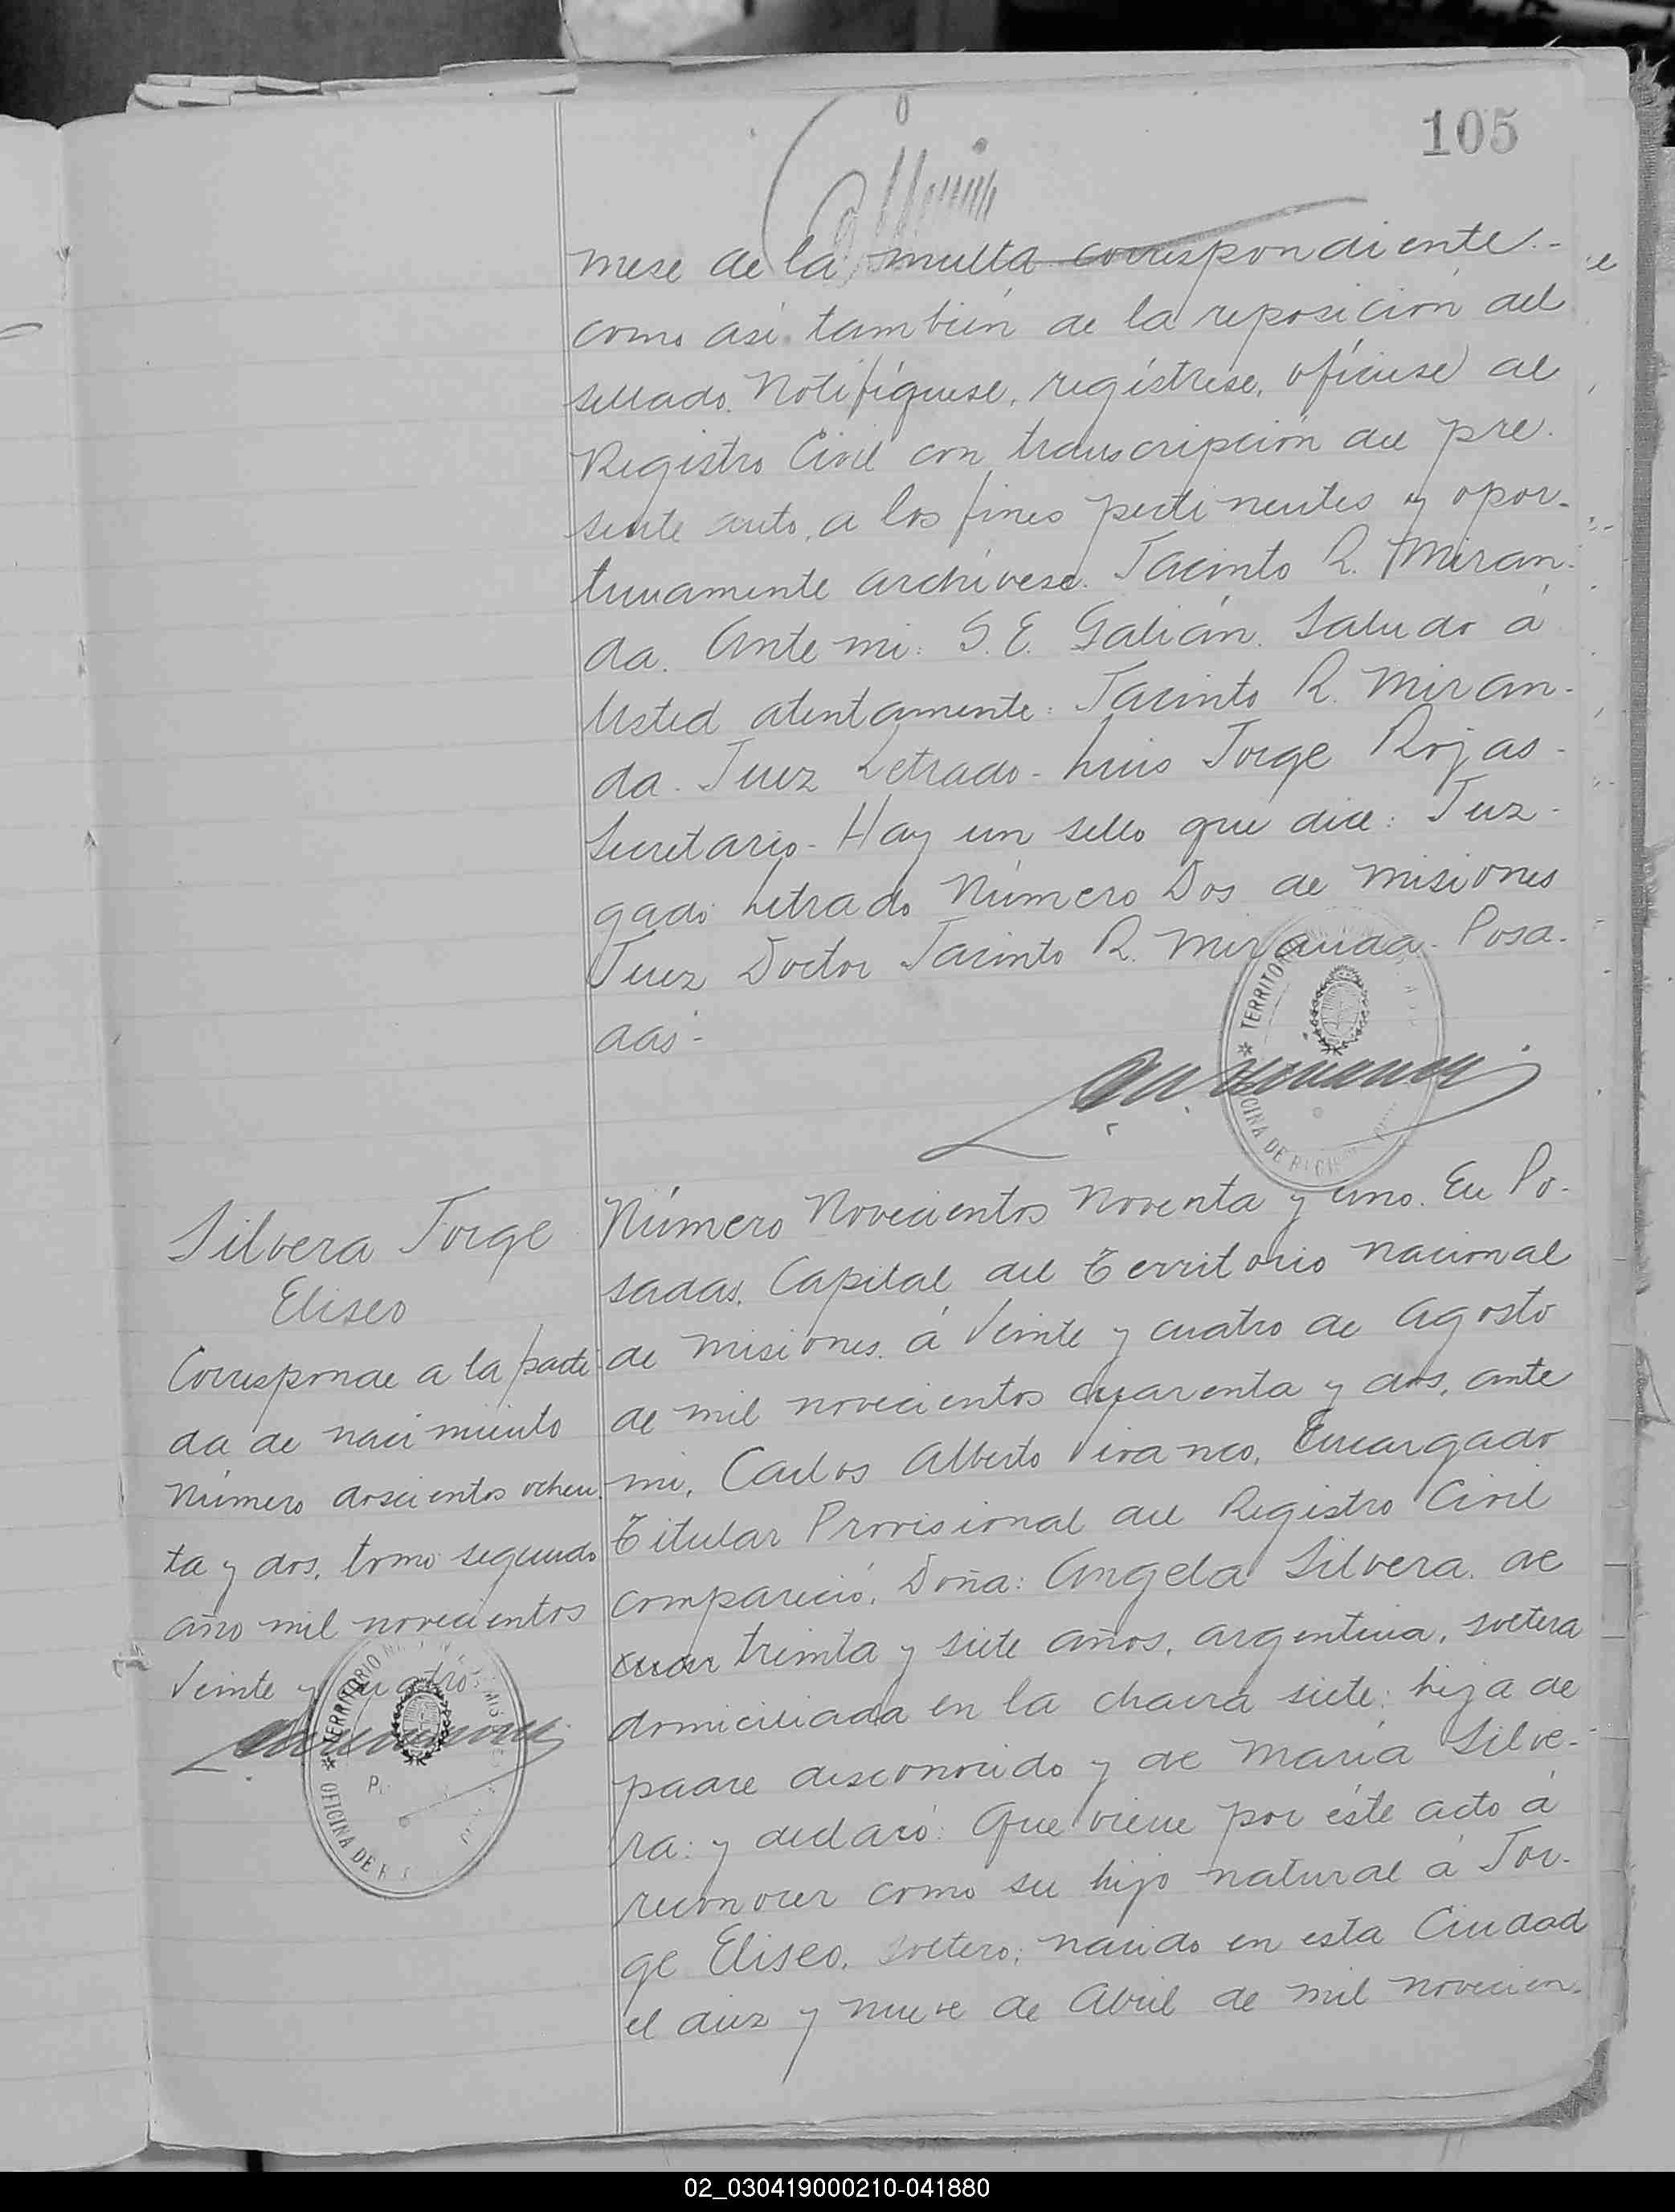 105
mese de la multa correspondiente.-
como así también de la reposición del
sellado. Notifíquese, regístrese, ofíciese al
Registro Civil con transcripción del pre-
sente auto, a los fines pertinentes y opor-
tunamente archívese. Jacinto R. Miran-
da. Ante mi: S. E. Galián. Saludo á
Usted atentamente: Jacinto R. Miran-
da. Juez Letrado - Luis Jorge Rojas -
Secretario - Hay un sello que dice: Juz-
gado Letrado Número Dos de Misiones
Juez Doctor Jacinto R. Miranda - Posa-
das -
TERRITORIO
OFICINA DE
Silvera Jorge
Eliseo
Corresponde a la parti
da de nacimiento
Número doscientos ochen-
ta y dos, tomo segundo
año mil novecientos
Veinte y cuatro
TERRITORIO
OFICINA DE
Número Novecientos noventa y uno. En Po-
sadas, Capital del Territorio Nacional
de Misiones, á Veinte y cuatro de Agosto
de mil novecientos cuarenta y dos, ante
mi, Carlos Alberto Vivanco, Encargado
Titular Provisional del Registro Civil
compareció, Doña: Angela Silvera, de
cuar treinta y siete años, argentina, soltera
domiciliada en la chacra siete: hija de
padre desconocido y de María Silve-
ra: y declaró: Que viene por éste acto á
reconocer como su hijo natural á Jor-
ge Eliseo, soltero, nacido en esta Ciudad
el diez y nueve de Abril de mil novecien-
02_030419000210-041880